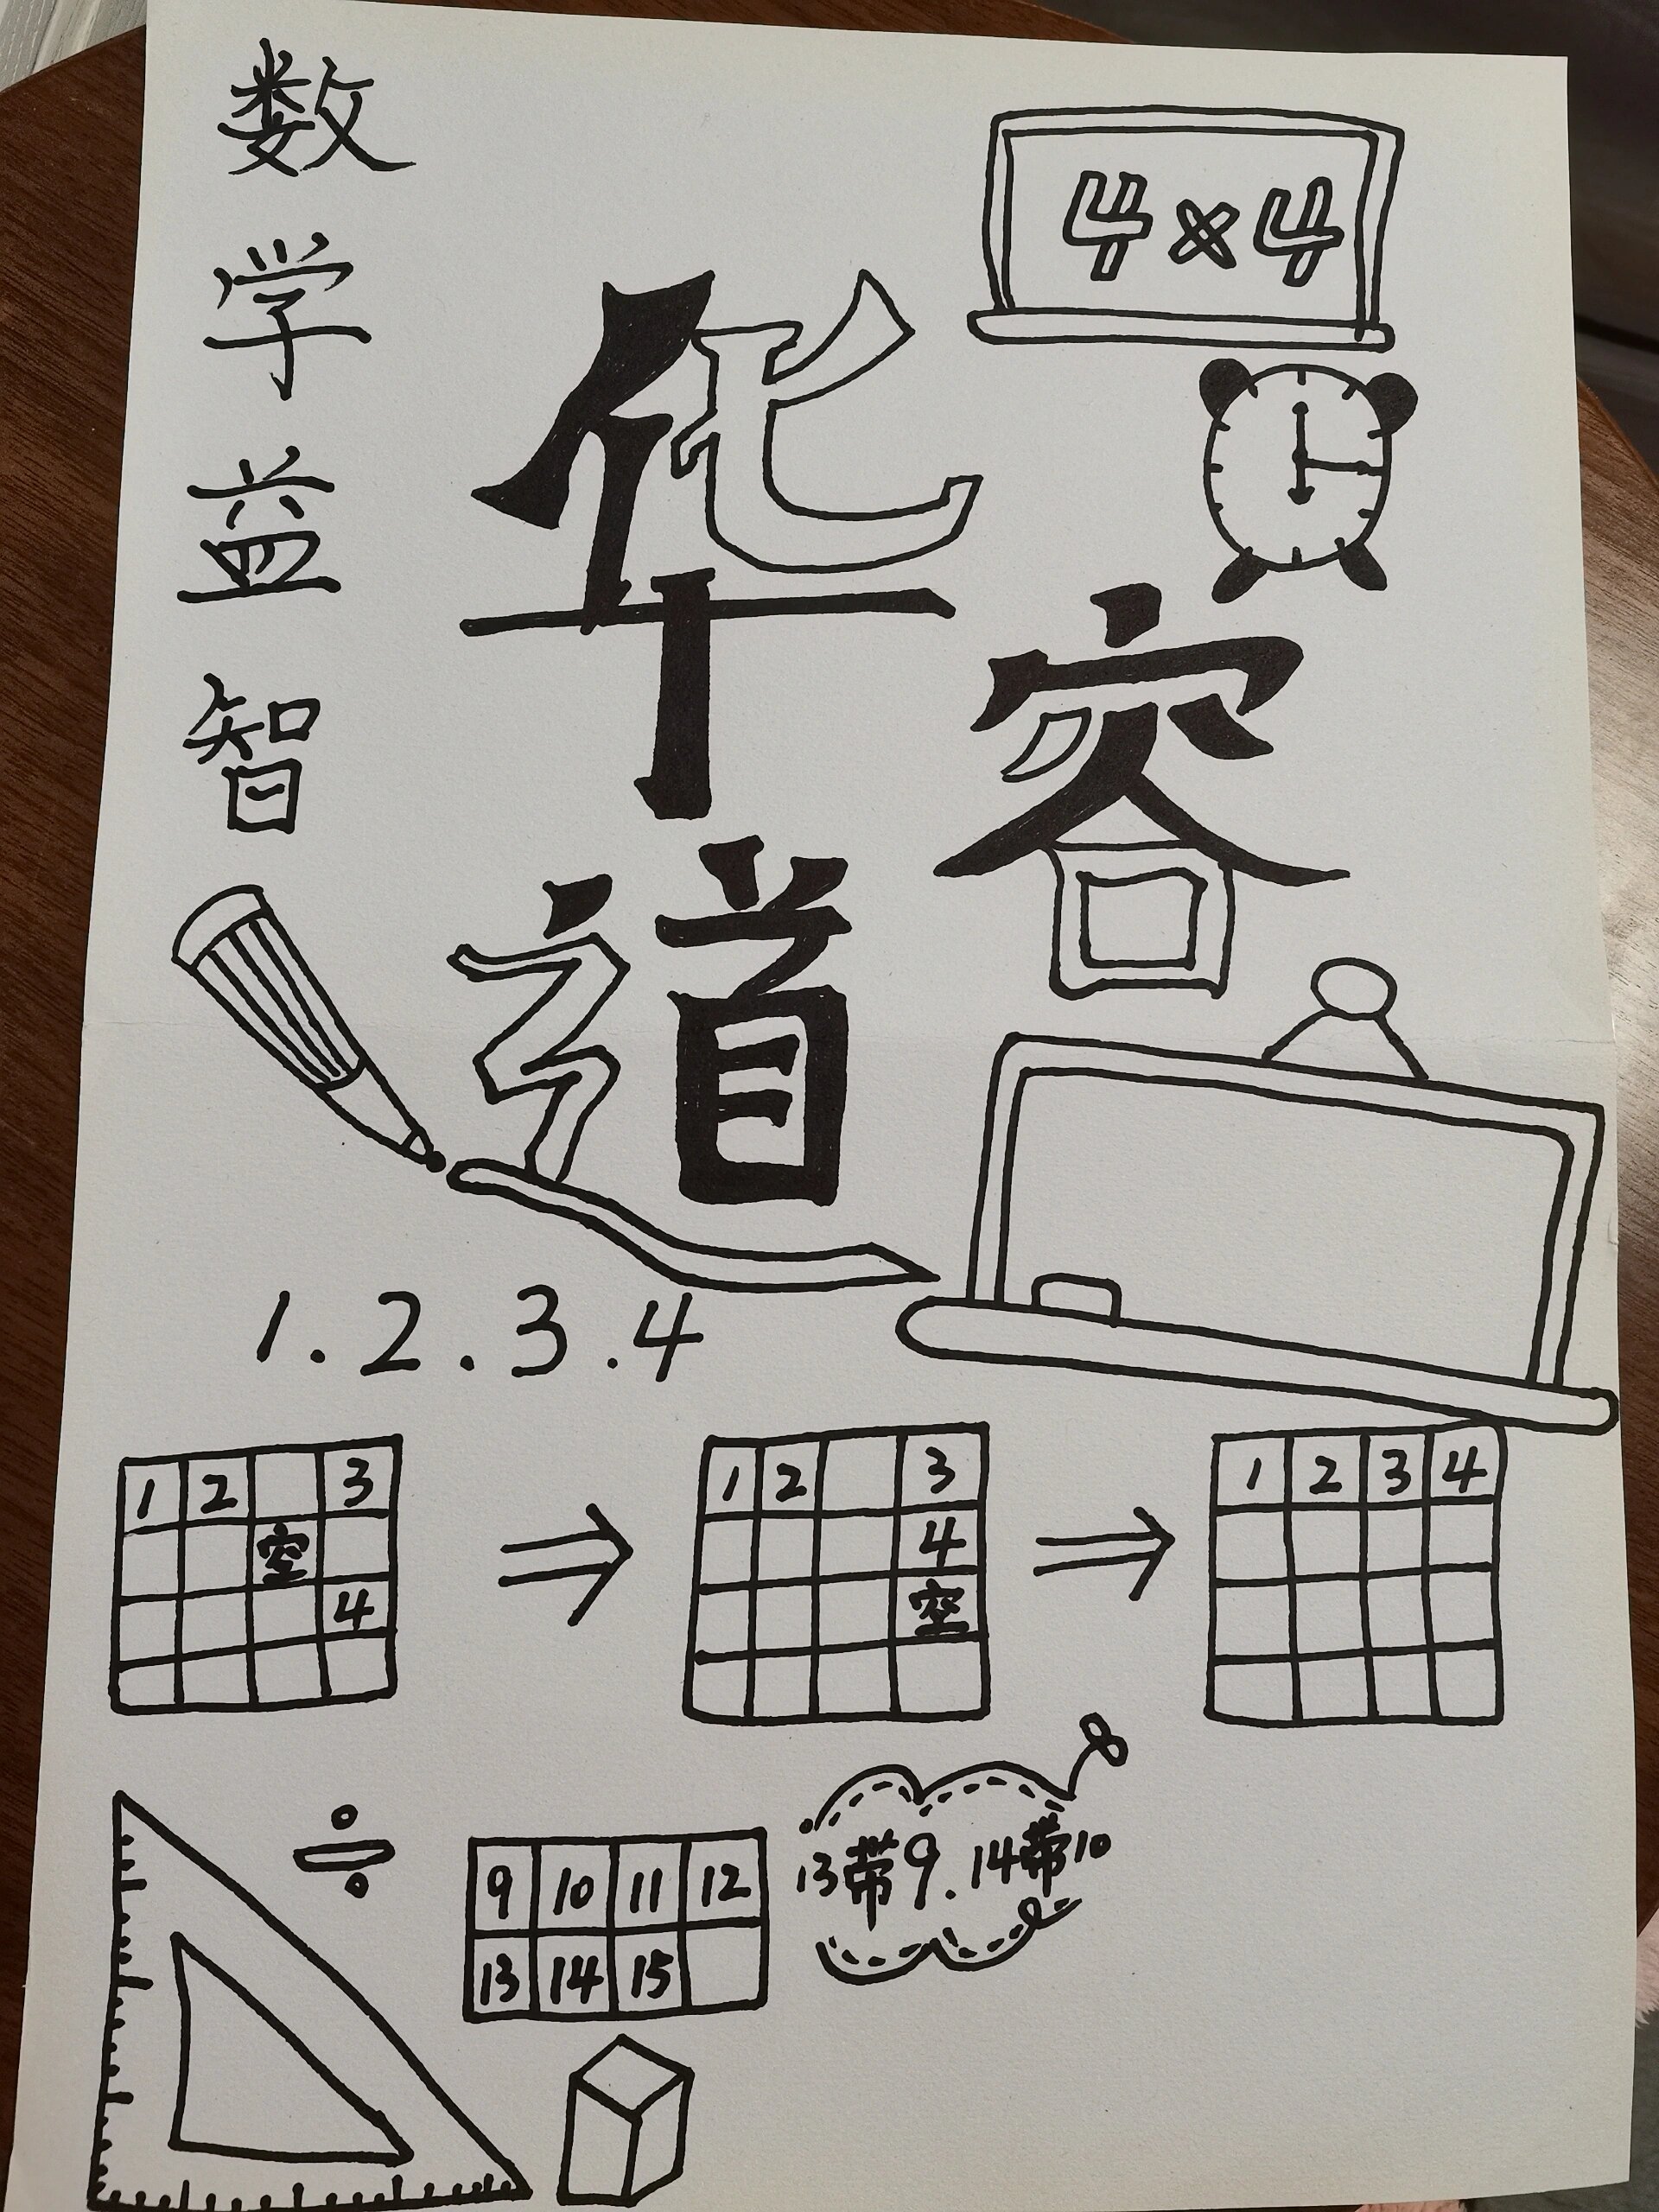 数学益智
4×4
华容道
1.2.3.4
1 2 3
空
4
1 2 3
4
空
1 2 3 4
÷
9 10 11 12
13 14 15
13带9.14带10